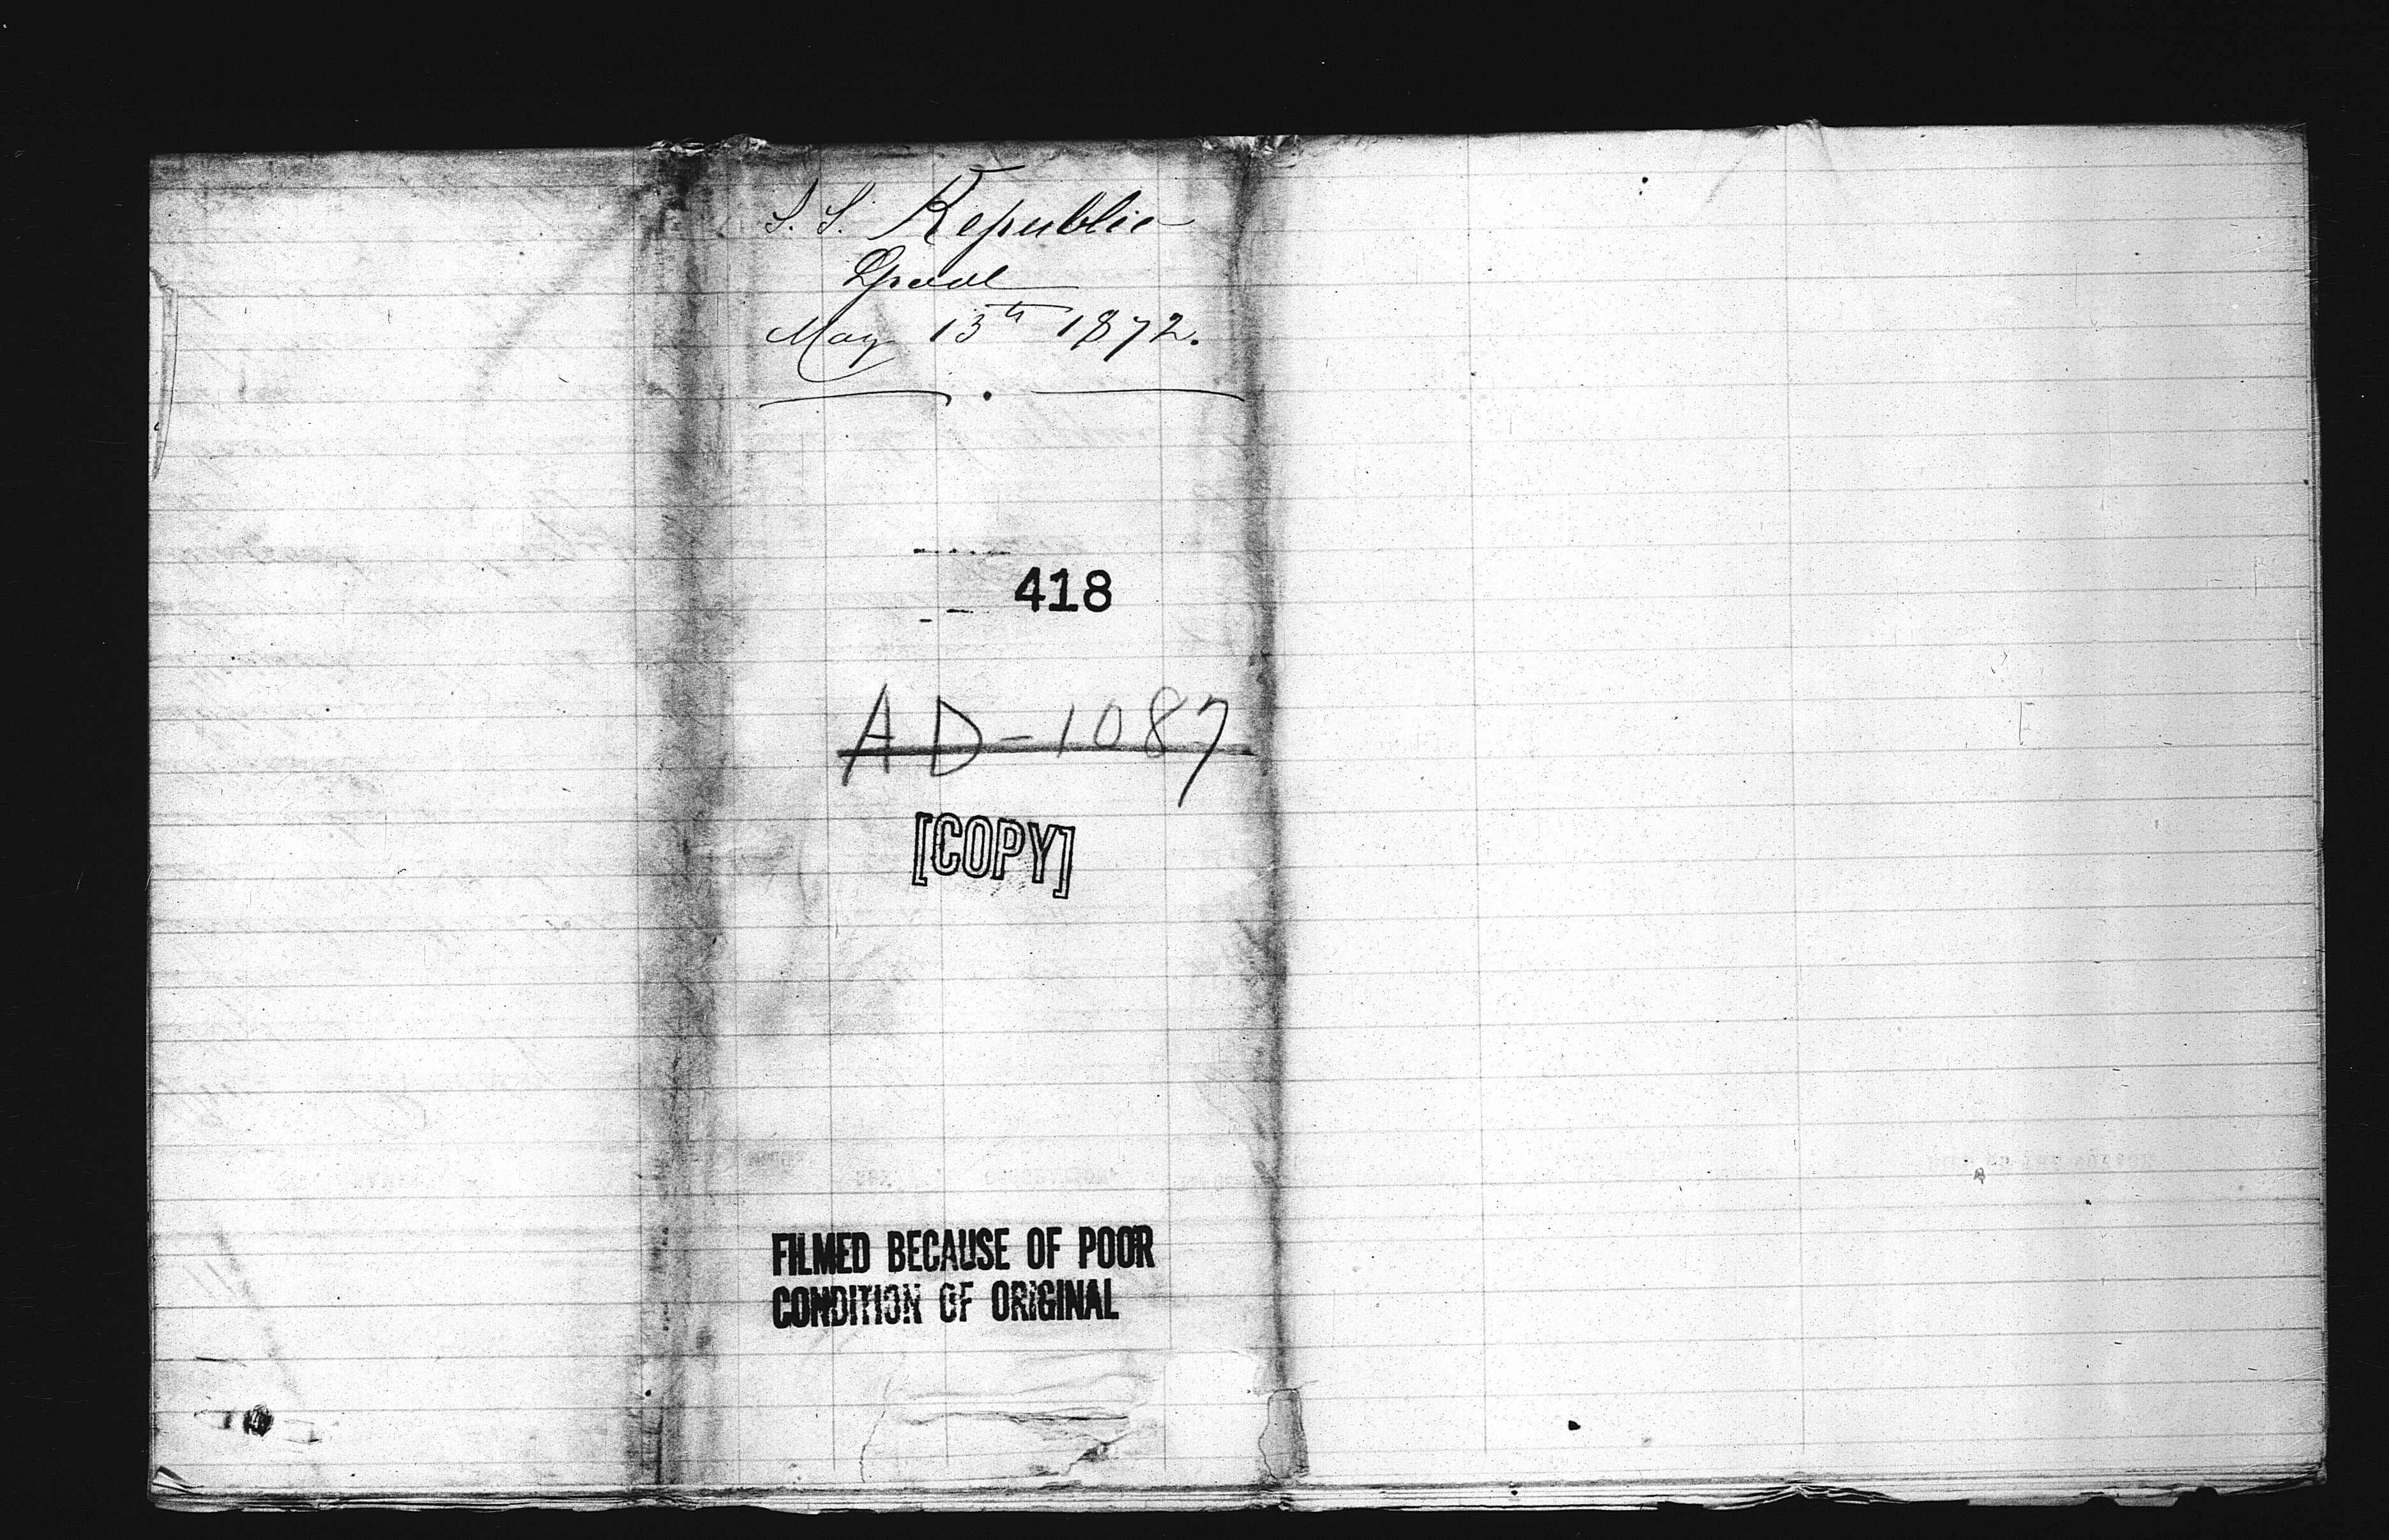 S. S. Republic
Lpool
May 13th 1872.
418
AD-1087
[COPY]
FILMED BECAUSE OF POOR
CONDITION OF ORIGINAL